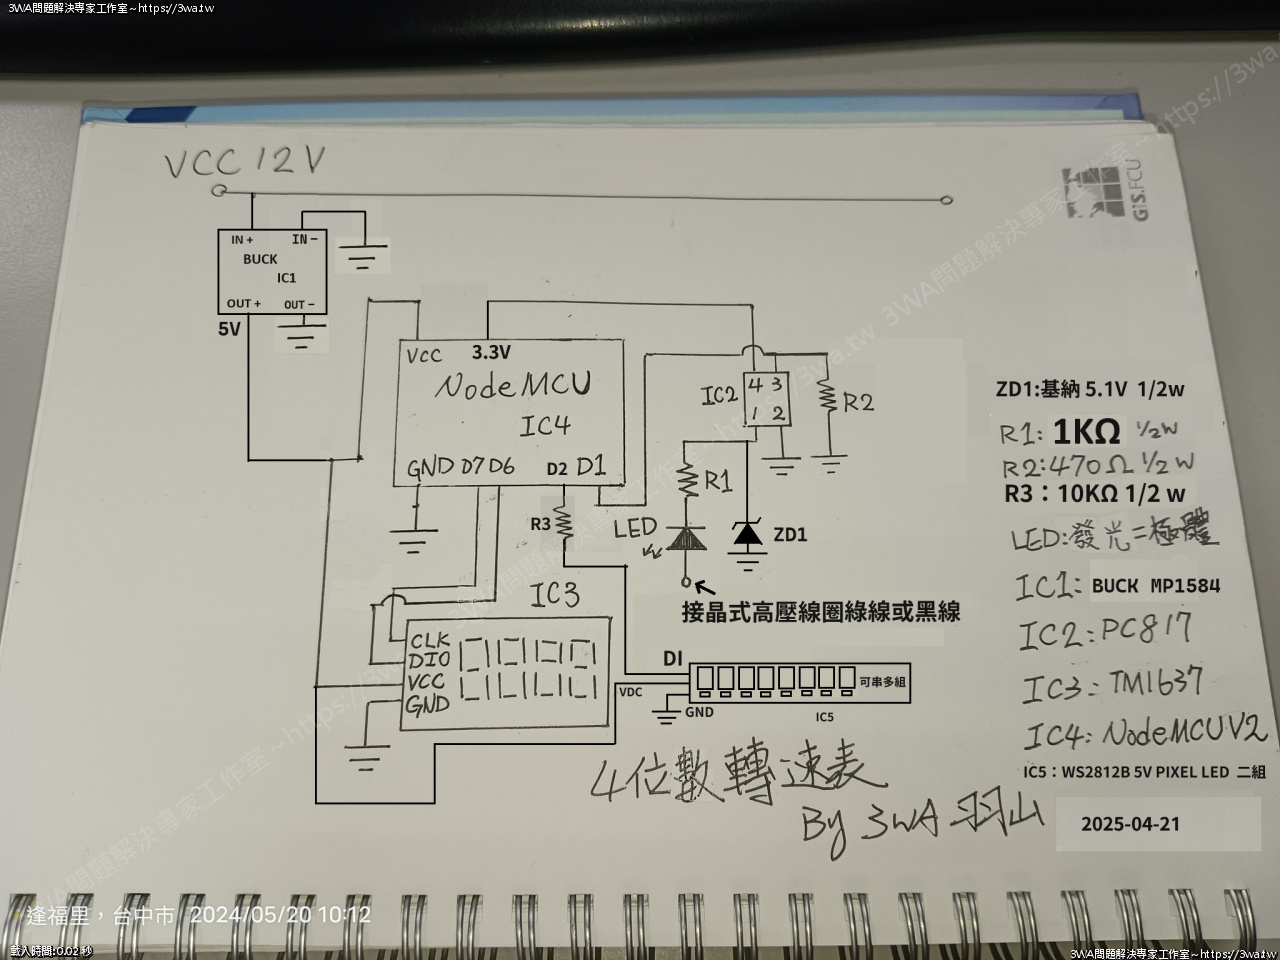 3WA問題解決專家工作室~https://3wa.tw
https://3wa.tw
3WA問題解決專家工作室~https://3wa.tw
3WA問題解決專家工作室~https://3wa.tw
GIS.FCU
VCC 12V
IN+ IN-
BUCK
IC1
OUT+ OUT-
5V
VCC 3.3V
NodeMCU
IC4
GND D7 D6 D2 D1
IC2
4 3
1 2
R2
R1
R3
LED
ZD1
接晶式高壓線圈綠線或黑線
IC3
CLK
DIO
VCC
GND
DI
VDC
GND
可串多組
IC5
ZD1:基納 5.1V 1/2w
R1: 1KΩ 1/2W
R2:470Ω 1/2W
R3：10KΩ 1/2 w
LED:發光二極體
IC1: BUCK MP1584
IC2: PC817
IC3: TM1637
IC4: NodeMCUV2
IC5：WS2812B 5V PIXEL LED 二組
4位數轉速表
By 3WA 羽山
2025-04-21
逢福里，台中市 2024/05/20 10:12
載入時間:0.02 秒
3WA問題解決專家工作室~https://3wa.tw